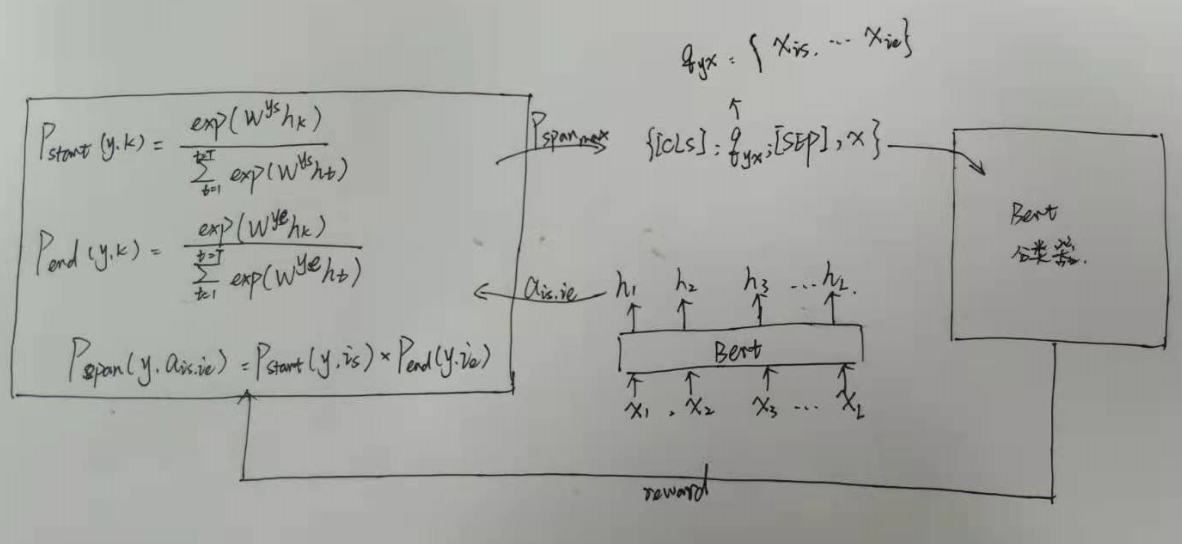 P_start(y.k) = exp(W^{ys} h_k) / Σ_{t=1}^{t=T} exp(W^{ys} h_t)
P_end(y.k) = exp(W^{ye} h_k) / Σ_{t=1}^{t=T} exp(W^{ye} h_t)
P_span(y.a_{is.ie}) = P_start(y.is) × P_end(y.ie)
P_span_max
q_yx = { x_is. ... x_ie}
{[CLS] ; q_yx ; [SEP] , x}
Bert
分类器.
a_is.ie
h_1 h_2 h_3 ... h_L.
Bert
x_1 , x_2 x_3 ... x_L
reward